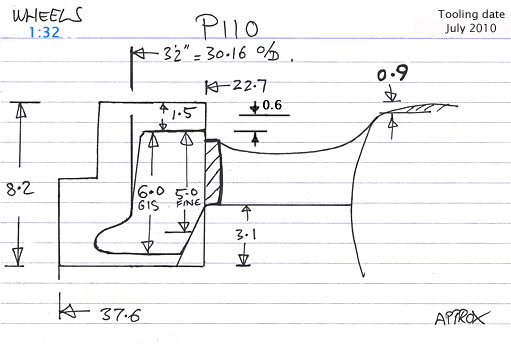 WHEELS
1:32
P110
Tooling date
July 2010
3'2" = 30.16 O/D.
22.7
0.9
0.6
1.5
8.2
6.0
GIS
5.0
FINE
3.1
37.6
APPROX